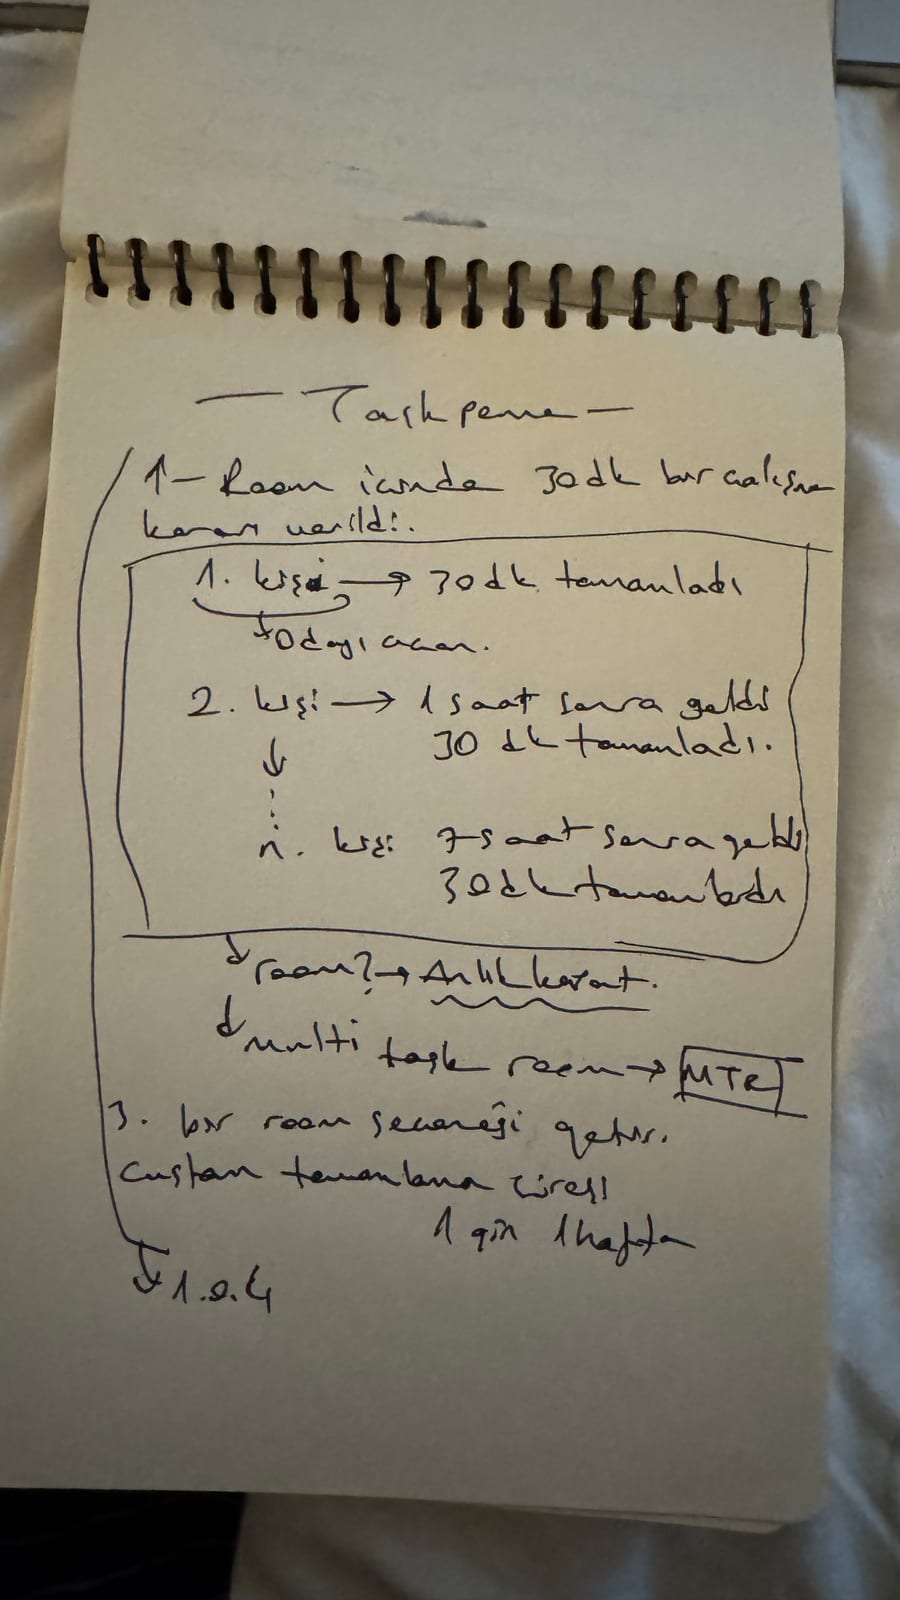 — Taskpene —
1- Room içinde 30dk bir çalışma
kararı verildi.
1. kişi → 30 dk tamamladı
Odayı açan.
2. kişi → 1 saat sonra geldi
30 dk tamamladı.
n. kişi 7 saat sonra geldi
30 dk tamamladı
room? →
multi task room → MTR
3. bir room seçeneği getir.
Custom tamamlama süresi
1 gün 1 hafta
1.0.4